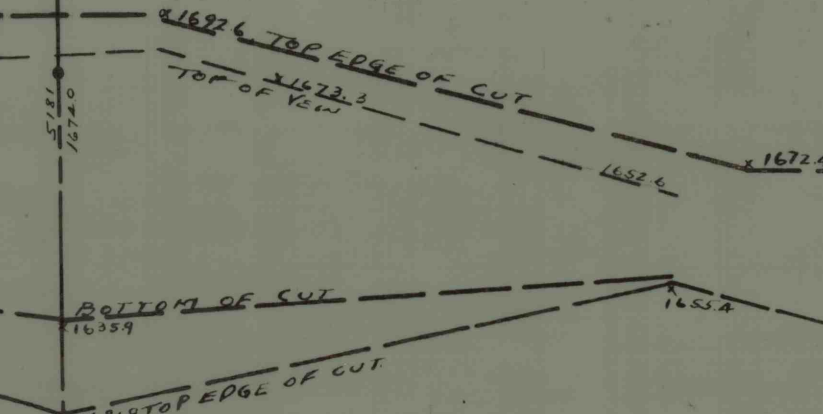 x 1692.6 TOP EDGE OF CUT
TOP OF VEIN
x 1673.3
1652.6
x 1672.
5181
1674.0
BOTTOM OF CUT
x 1635.9
x 1655.4
TOP EDGE OF CUT